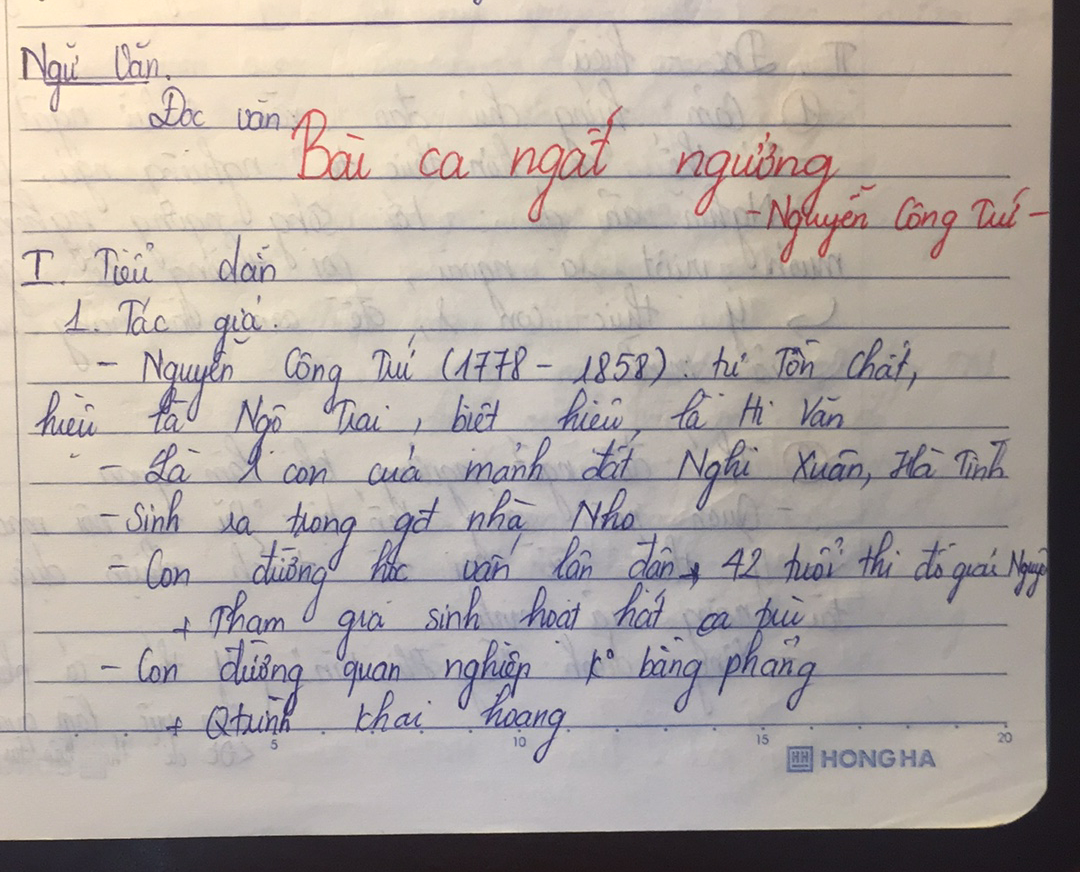 Ngữ Văn.
Đọc văn:
Bài ca ngất ngưởng
- Nguyễn Công Trứ -
I. Tiểu dẫn
1. Tác giả.
- Nguyễn Công Trứ (1778 - 1858): tự Tồn Chất,
hiệu là Ngộ Trai, biệt hiệu là Hi Văn
- Là 1 con của mảnh đất Nghi Xuân, Hà Tĩnh
- Sinh ra trong gđ nhà Nho
- Con đường học vấn lận đận → 42 tuổi thi đỗ giải
+ Tham gia sinh hoạt hát ca trù
- Con đường quan nghiệp k° bằng phẳng
+ Qtrình khai hoang
5 10 15 20
HONG HA